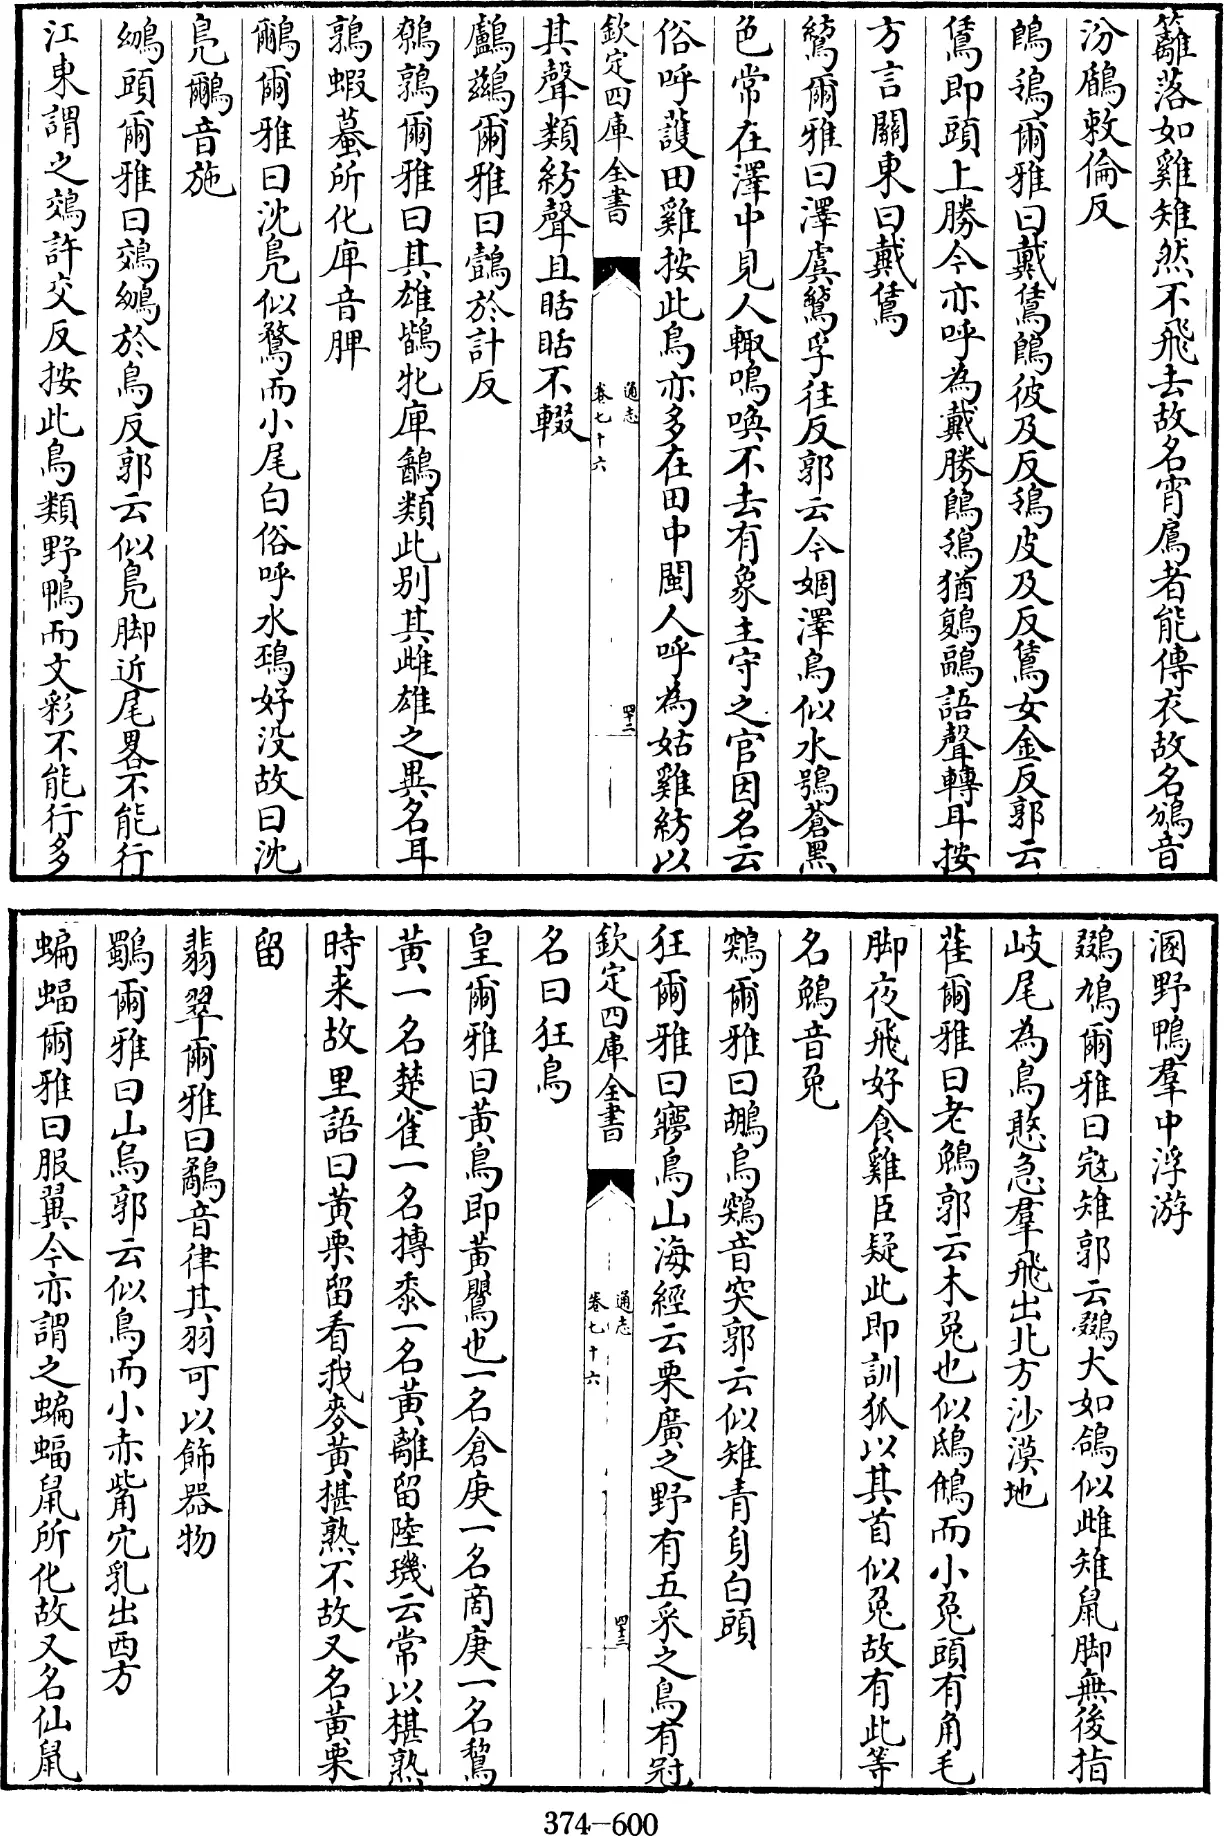 籬落如雞雉然不飛去故名宵鳸者能傳衣故名鳻音
汾鶞敕倫反
鵖鴔爾雅曰戴鵀鵖彼及反鴔皮及反鵀女金反郭云
鵀即頭上勝今亦呼為戴勝鵖鴔猶鶝鶔語聲轉耳按
方言關東曰戴鵀
鶭爾雅曰澤虞鶭孚往反郭云今婟澤鳥似水鴞蒼黑
色常在澤中見人輙鳴喚不去有象主守之官因名云
俗呼護田雞按此鳥亦多在田中閩人呼為姑雞紡以
欽定四庫全書
通志
卷七十六
四十二
其聲類紡聲且聒聒不輟
鸕鷀爾雅曰鷧於計反
鷯鶉爾雅曰其雄鶛牝庳鶕類此别其雌雄之異名耳
鶉蝦蟇所化庳音脾
鸍爾雅曰沈鳬似鶩而小尾白俗呼水鵶好没故曰沈
鳬鸍音施
䴈頭爾雅曰鵁䴈於鳥反郭云似鳬脚近尾畧不能行
江東謂之鵁許交反按此鳥類野鴨而文彩不能行多
溷野鴨羣中浮游
鵽鳩爾雅曰寇雉郭云鵽大如鴿似雌雉鼠脚無後指
岐尾為鳥憨急羣飛出北方沙漠地
萑爾雅曰老鵵郭云木兎也似鴟鵂而小兎頭有角毛
脚夜飛好食雞臣疑此即訓狐以其首似兎故有此等
名鵵音兎
鶟爾雅曰鶘鳥鶟音突郭云似雉青身白頭
狂爾雅曰㝱鳥山海經云栗廣之野有五采之鳥有冠
欽定四庫全書
通志
卷七十六
四十三
名曰狂鳥
皇爾雅曰黄鳥即黄鸎也一名倉庚一名商庚一名鵹
黄一名楚雀一名摶黍一名黄離留陸璣云常以椹熟
時来故里語曰黄栗留看我麥黄椹熟不故又名黄栗
留
翡翠爾雅曰鷸音律其羽可以飾器物
鸀爾雅曰山烏郭云似烏而小赤觜穴乳出西方
蝙蝠爾雅曰服翼今亦謂之蝙蝠鼠所化故又名仙鼠
374-600